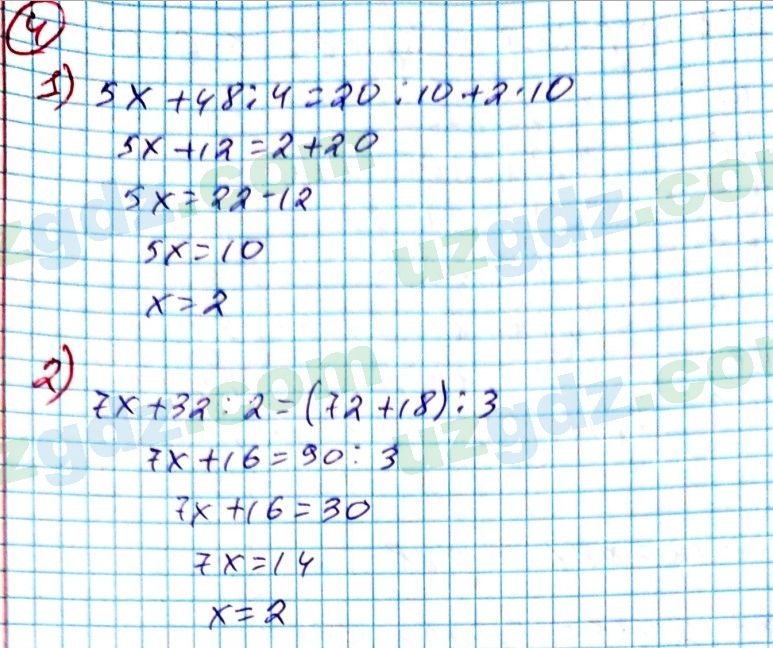 4
1) 5x+48:4=20:10+2·10
5x+12=2+20
5x=22-12
5x=10
x=2
2) 7x+32:2=(72+18):3
7x+16=90:3
7x+16=30
7x=14
x=2
uzgdz.com
uzgdz.com
uzgdz.com
uzgdz.com